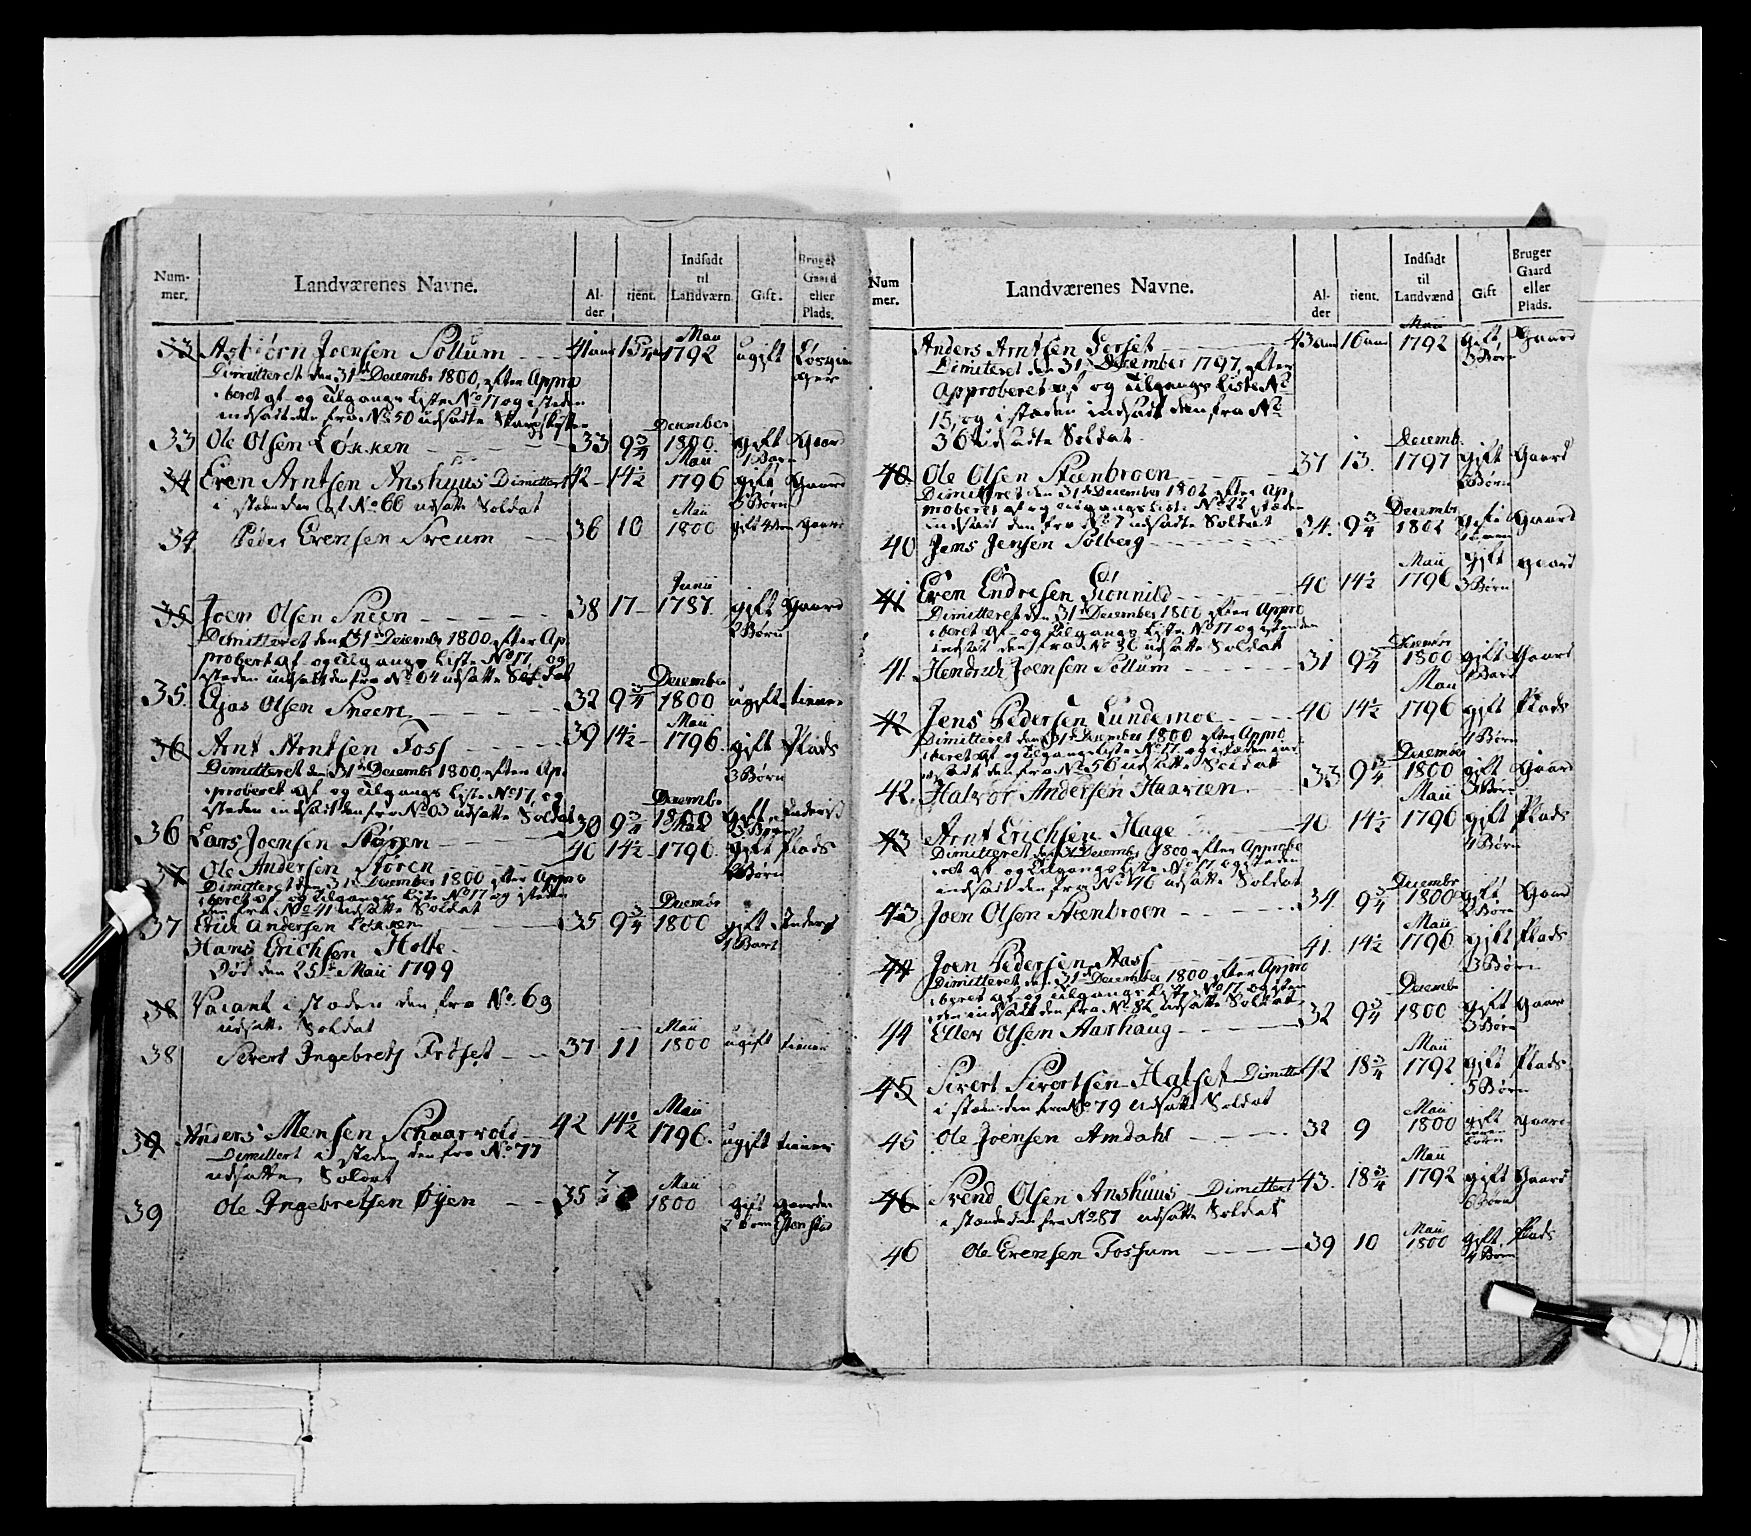 Num-
mer.
Landværenes Navne.
Al-
der
tient.
Indsadt
til
Landværn
Gift.
Bruger
Gaard
eller
Plads.
33 Asbiörn Joensen Sollum 41 aar 15 1792 Maii ugift
Dimitteret den 31te December 1800, efter Appro
beret af og Tilgangs Liste No 17 og i steden
indsadt den fra No 50 udsadte
33 Ole Olsen Løkken 33 9 3/4 December 1800 gift 1 Barn Gaard
34 Eren Arntsen Anshuus Dimittert 42 14 1/2 Maii 1796 gift 3 Børn Gaard
i stæden den af No 66 udsatte Soldat
34 Peder Erensen Sreum 36 10 Maii 1800 gift 4 Børn Gaard
35 Joen Olsen Sneen 38 17 Junii 1787 gift 2 Børn Gaard
Dimitteret den 31te December 1800 efter Ap-
probert af og Tilgangs Liste No 17, og
steden indsatt den fra No 64 udsatte Soldat
35. Olsen Sneen 32 9 3/4 December 1800 ugift tiener
36 Arnt Arntsen Foss 39 14 1/2 Maii 1796 gift 3 Børn Plads
Dimitteret den 31te December 1800, efter Ap-
proberet af og Tilgangs Liste No 17, og
steden indsatt den fra No 63 udsatte Soldat
36 Lars Joensen Støren 30 9 3/4 December 1800 gift 3 Børn
37 Ole Andersen Støren 40 14 1/2 Maii 1796 gift 2 Børn Plads
Dimitteret den 31te December 1800 efter Appro
beret af og Tilgangs Liste No 17 og i steden
den fra No 41 udsatte Soldat
37 Erik Andersen Løkken 35 9 3/4 December 1800 gift 1 Barn
Hans Erichsen Holte
Død den 25te Maii 1799
38 Vacant i stæden den fra No. 69
udsatte Soldat
38 Sivert Ingebrets Frøset 37 11 Maii 1800 ugift tiener
39 Anders Mensen Schaarvold 42 14 1/2 Maii 1796. ugift tiener
Dimittert i steden den fra No 77
udsatte Soldat
39 Ole Ingebretsen Øyen 35 Maii 1800 gift 2 Børn
Num
mer.
Landværenes Navne.
Al-
der
tient.
Indsadt
til
Landvænd
Gift
Bruger
Gaard
eller
Plads.
Anders Arntsen Forset 43 aar 16 aar Maii 1792 gift 3 Børn Gaard
Dimiteret den 31te December 1797, efter
Approberet af og Tilgangs Liste No
15, og i stæden indsadt den fra No
36 udsadte Soldat.
40. Ole Olsen Steenbroen 37 13. Decemb. 1797 gift 2 Børn Gaard
Dimitteret den 31te December 1802 efter Ap-
proberet af og Tilgangs Liste No 22 steden
indsatt den fra No 7 udsadte Soldat
40 Jens Jensen Solberg 34. 9 3/4 December 1802 gift Gaard
41 Eren Endresen Siønnild 40 14 1/2 Maii 1796 gift 3 Børn gaard
Dimitteret den 31te December 1800 efter Appro
beret af og Tilgangs Liste No 17 og i steden
indsat den fra No 36 udsatte Soldat
41. Hendrich Joensen Sollum 31 9 3/4 December 1800 gift 1 Barn Gaard
42 Jens Pedersen Lundemoe 40 14 1/2 Maii 1796 gift 1 Børn Plads
Dimitteret den 31te December 1800 efter Appro
beret af og Tilgangs Liste No 17. og i stæden ind-
sadt den fra No 56 udsatte Soldat
42. Halvor Andersen Haarien 33 9 3/4 December 1800 gift 3 Børn Gaard
43 Arnt Erichsen Hage 40 14 1/2 Maii 1796 gift 1 Børn Plads
Dimitteret den 31te December 1800 efter Approbe
ret af og Tilgangs Liste No 17 og i steden
indsadt den fra No 46 udsatte Soldat
43 Joen Olsen Steenbroen 34 9 3/4 December 1800 gift 2 Børn Gaard
44 Joen Pedersen Aass 41. 14 1/2 Maii 1796 gift 3 Børn Plads
Dimitteret den 31te December 1800 efter Appro
beret af og Tilgangs Liste No 17, og i sten
den indsatt den fra No 82 udsatte Soldat
44 Eller Olsen Aarhaug 32 9 3/4 Decembr 1800 gift 3 Børn Gaard
45 Sivert Sivertsen Halset Dimittert 42 18 3/4 Maii 1792 gift 5 Børn Plads
i stæden den fra No 79 udsatte Soldat
45 Ole Joensen Amdahl 32 9 Maii 1800 gift Gaard
46 Svend Olsen Anshuus Dimittert 43. 18 3/4 Maii 1792 gift 6 Børn Gaard
i stæden den fra No 87 udsatte Soldat
46 Ole Erensen Fossum 39 10 Maii 1800 gift 4 Børn Plads